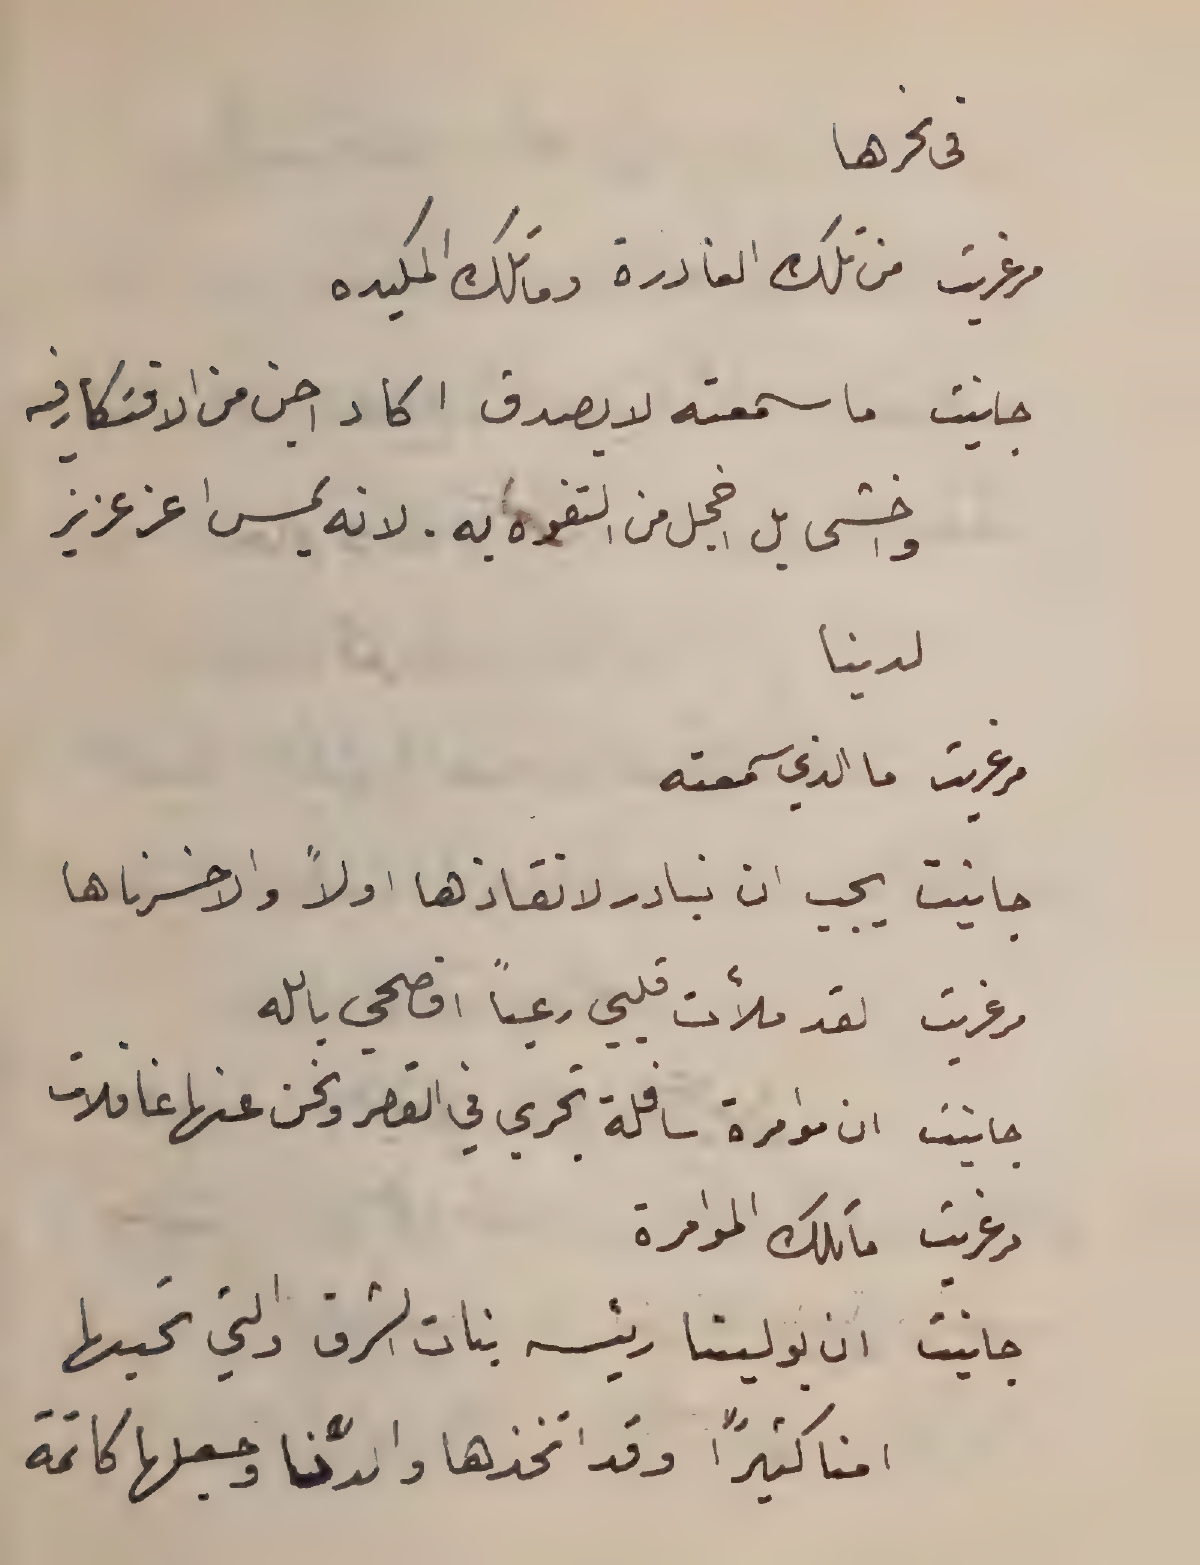 فى نحرها
مرغريت من تلك الغادرة وما تلك المكيده
جانيت ما سمعته لا يصدق اكاد اجن من الافتكار فيه
واخشى بل اخجل من التفوه به . لانه يمس اعز عزيز
لدينا
مرغريت ما الذي سمعته
جانيت يجب ان نبادر لانقاذها اولاً والا خسرناها
مرغريت لقد ملأت قلبي رعباً افصحي بالله
جانيت ان موامرة سافلة تجري في القصر ونحن عنها غافلات
مرغريت ما تلك الموامرة
جانيت ان بولينا رئيسه بنات الشرق والتي تحبها
امنا كثيرًا وقد اتخذها والدنا وجعلها كاتمة